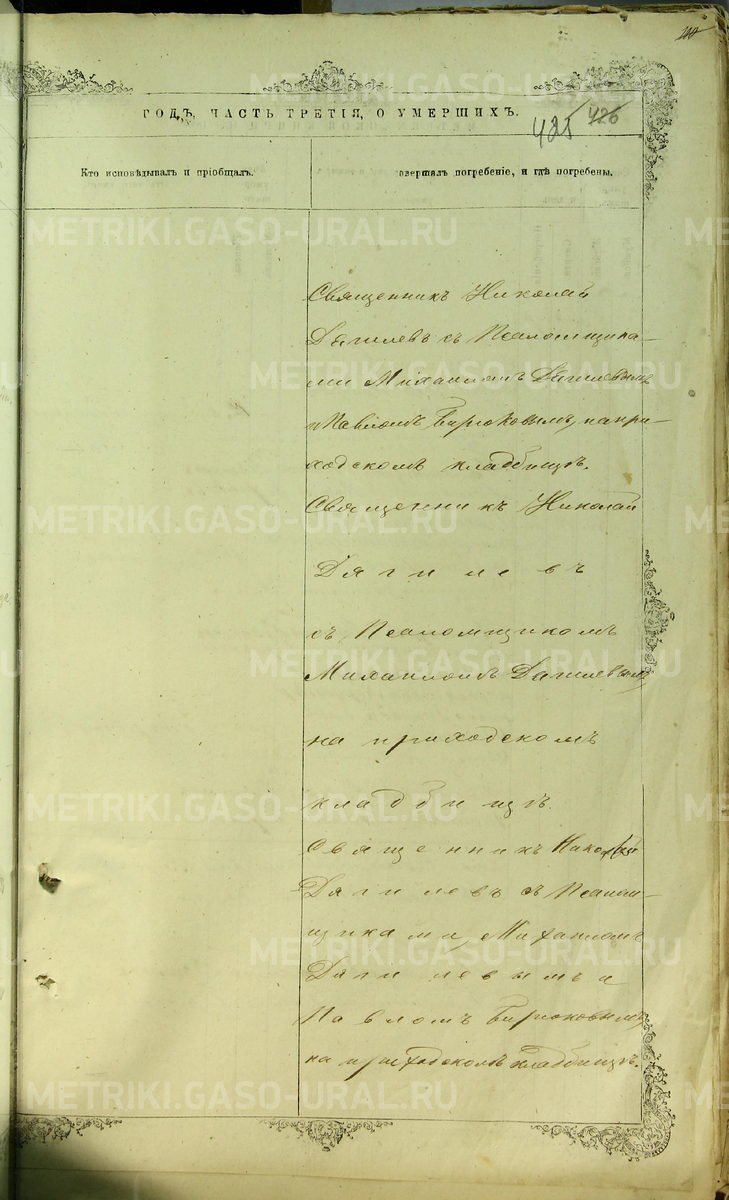 ГОДЪ, ЧАСТЬ ТРЕТІЯ, О УМЕРШИХЪ.
425 426
Кто исповѣдывалъ и пріобщалъ.
овершалъ погребеніе, и гдѣ погребены.
Священникъ Николай
Дягилевъ съ Псаломщика-
ми Михаиломъ Дягилевымъ
и Павломъ Бирюковымъ, на при-
ходскомъ кладбищѣ.
Священникъ Николай
Дягилевъ
съ Псаломщикомъ
Михаиломъ Дягилевымъ
на приходскомъ
кладбищѣ.
Священникъ Николай
Дягилевъ съ Псалом-
щиками, Михаиломъ
Дягилевымъ и
Павломъ Бирюковымъ,
на приходскомъ кладбищѣ.
METRIKI.GASO-URAL.RU